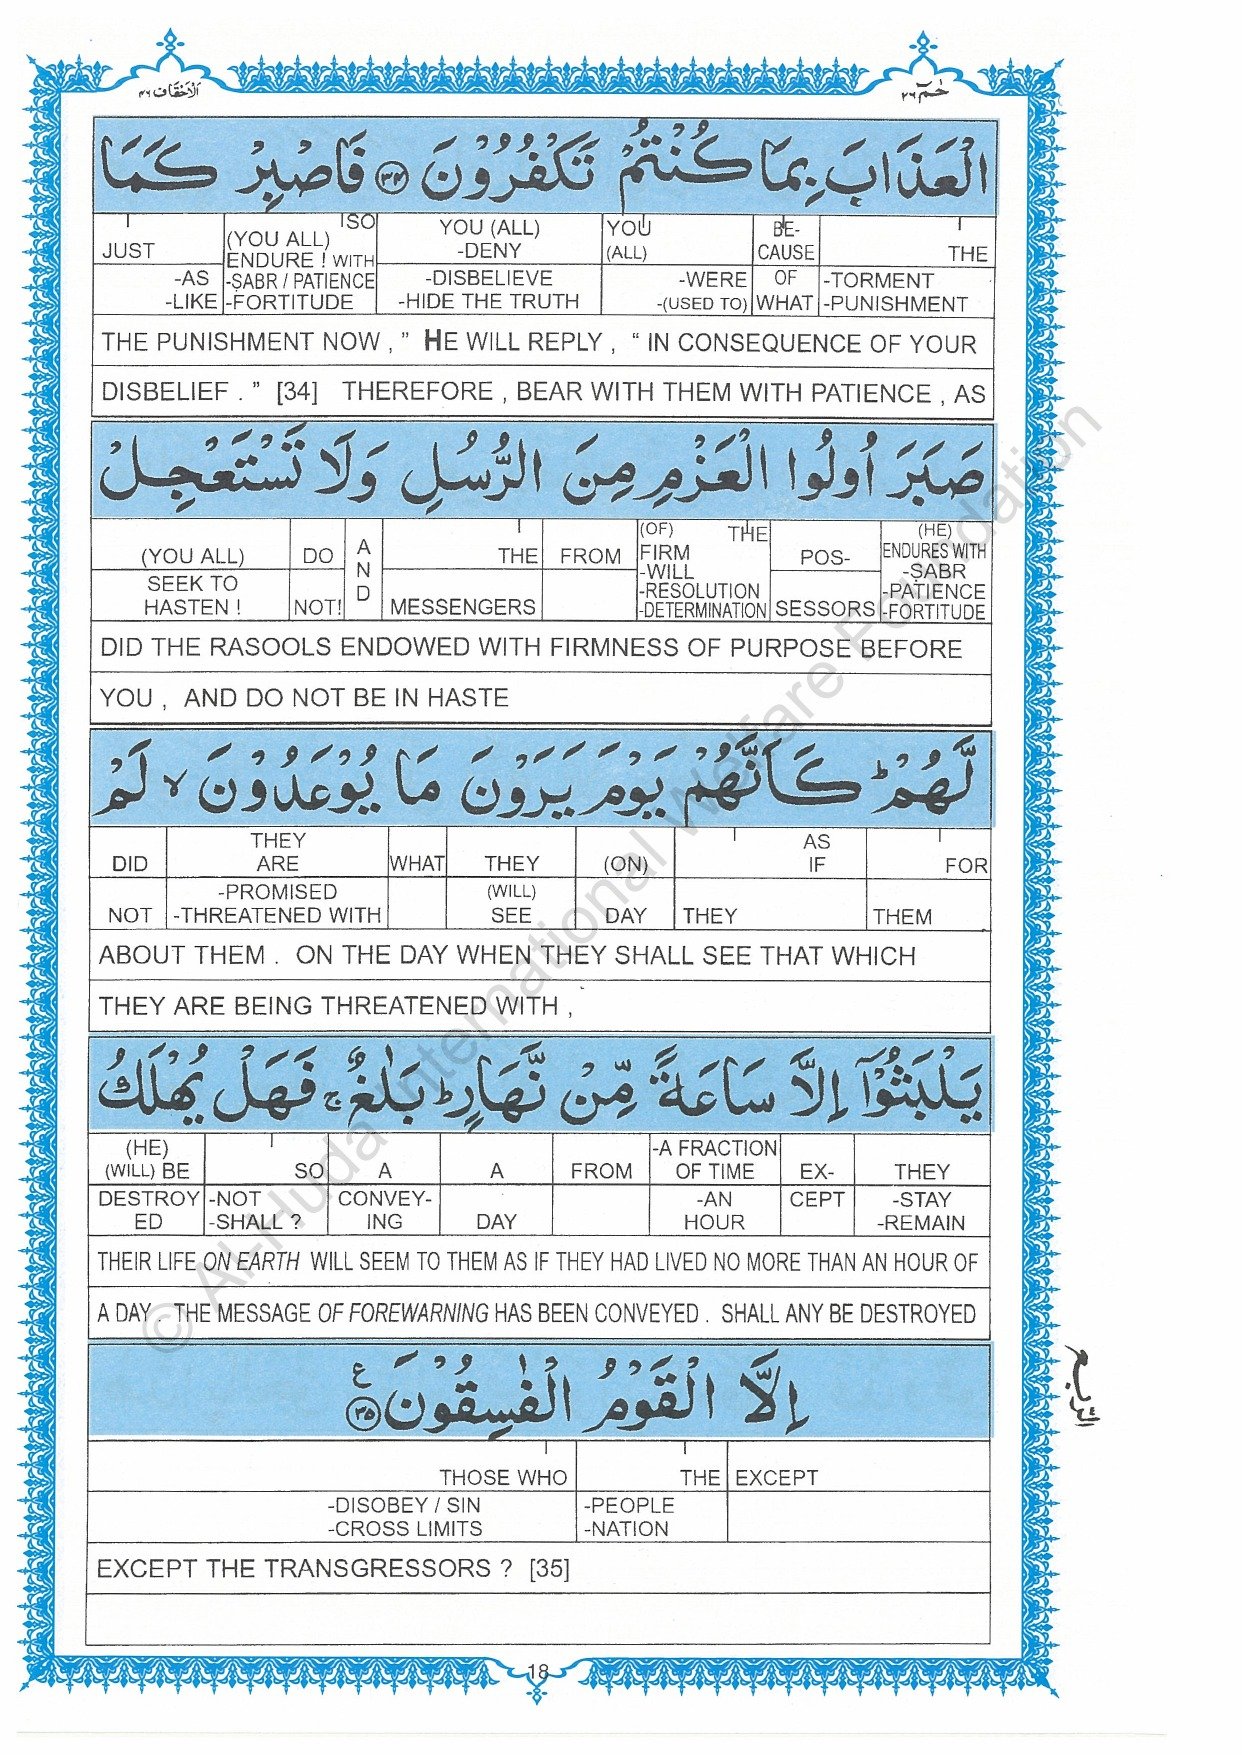 الاحقاف ٤٦
حٰمٓ ٢٦
الْعَذَابَ بِمَا كُنْتُمْ تَكْفُرُوْنَ ﴿٣٤﴾ فَاصْبِرْ كَمَا
JUST | SO (YOU ALL) | YOU (ALL) | YOU | BE- | THE
ENDURE ! WITH | -DENY | (ALL) | CAUSE
-AS | -SABR / PATIENCE | -DISBELIEVE | -WERE | OF | -TORMENT
-LIKE | -FORTITUDE | -HIDE THE TRUTH | -(USED TO) | WHAT | -PUNISHMENT
THE PUNISHMENT NOW , ” HE WILL REPLY , “ IN CONSEQUENCE OF YOUR
DISBELIEF . ” [34] THEREFORE , BEAR WITH THEM WITH PATIENCE , AS
صَبَرَ اُولُوا الْعَزْمِ مِنَ الرُّسُلِ وَلَا تَسْتَعْجِلْ
(OF) THE | (HE)
(YOU ALL) | DO | AND | THE | FROM | FIRM | POS- | ENDURES WITH
-WILL | -SABR
SEEK TO | -RESOLUTION | -PATIENCE
HASTEN ! | NOT! | MESSENGERS | -DETERMINATION | SESSORS | -FORTITUDE
DID THE RASOOLS ENDOWED WITH FIRMNESS OF PURPOSE BEFORE
YOU , AND DO NOT BE IN HASTE
لَّهُمْ ؕ كَاَنَّهُمْ يَوْمَ يَرَوْنَ مَا يُوْعَدُوْنَ ۙ لَمْ
THEY | AS
DID | ARE | WHAT | THEY | (ON) | IF | FOR
-PROMISED | (WILL)
NOT | -THREATENED WITH | SEE | DAY | THEY | THEM
ABOUT THEM . ON THE DAY WHEN THEY SHALL SEE THAT WHICH
THEY ARE BEING THREATENED WITH ,
يَلْبَثُوْۤا اِلَّا سَاعَةً مِّنْ نَّهَارٍ ؕ بَلٰغٌ ۚ فَهَلْ يُهْلَكُ
(HE) | -A FRACTION
(WILL) BE | SO | A | A | FROM | OF TIME | EX- | THEY
DESTROY | -NOT | CONVEY- | -AN | CEPT | -STAY
ED | -SHALL ? | ING | DAY | HOUR | -REMAIN
THEIR LIFE ON EARTH WILL SEEM TO THEM AS IF THEY HAD LIVED NO MORE THAN AN HOUR OF
A DAY . THE MESSAGE OF FOREWARNING HAS BEEN CONVEYED . SHALL ANY BE DESTROYED
اِلَّا الْقَوْمُ الْفٰسِقُوْنَ ﴿٣٥﴾ ع
THOSE WHO | THE | EXCEPT
-DISOBEY / SIN | -PEOPLE
-CROSS LIMITS | -NATION
EXCEPT THE TRANSGRESSORS ? [35]
18
© Al-Huda International Welfare Foundation